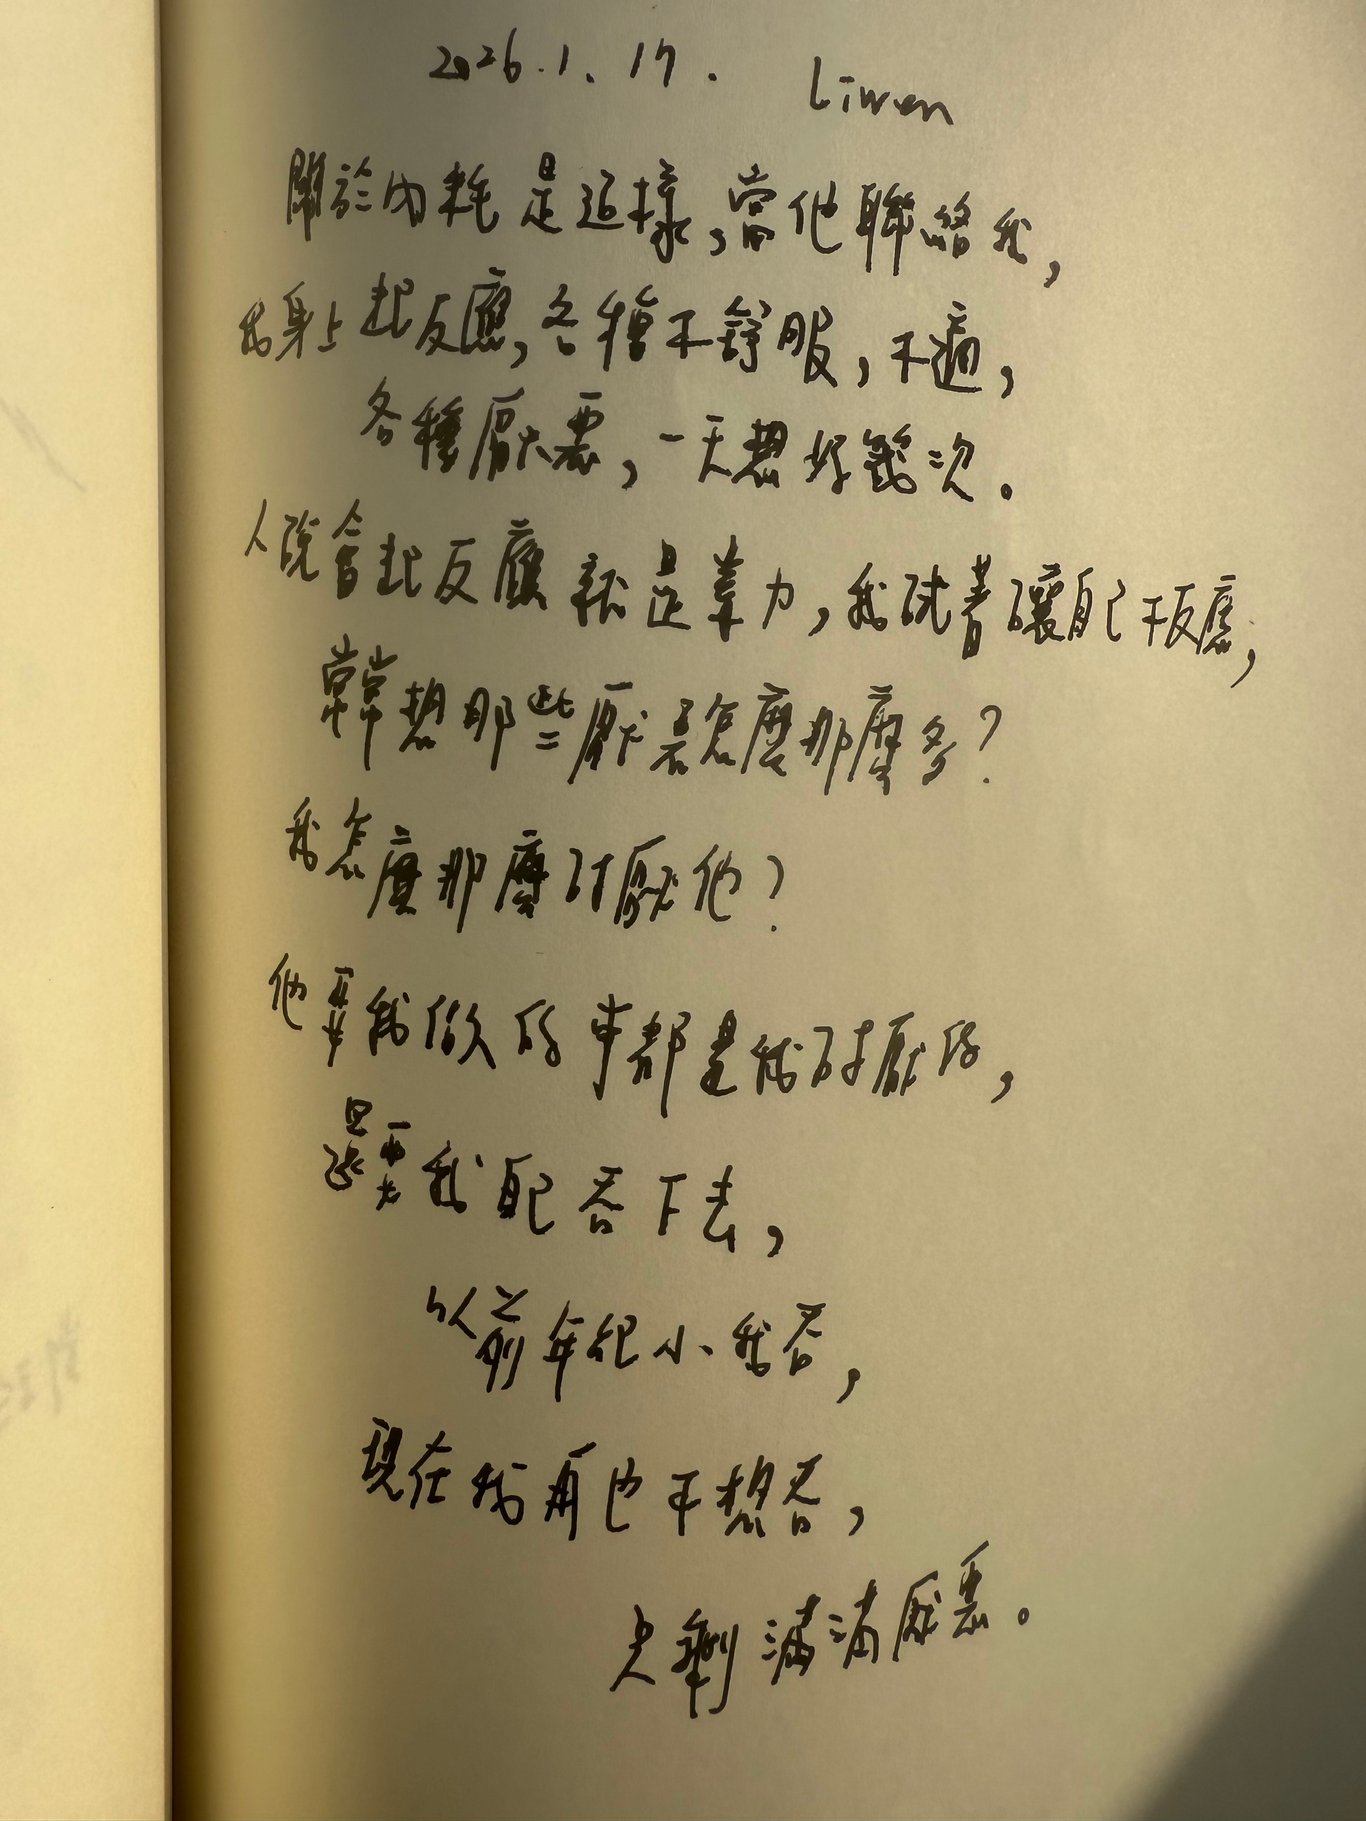 2026.1.17. Liwen
關於內耗是這樣，當他聯絡我，
我身上起反應，各種不舒服，不適，
各種厭惡，一天想好幾次。
人說會起反應就是業力，我試著讓自己不反應，
常常想那些厭惡怎麼那麼多？
我怎麼那麼討厭他？
他要我做的事都是我討厭的，
還要我自己吞下去，
以前年紀小我吞，
現在我再也不想吞，
只剩滿滿厭惡。